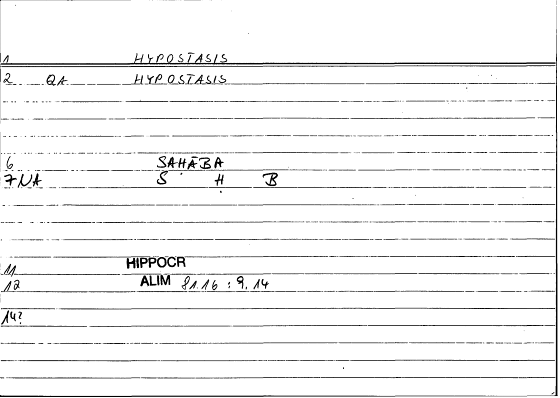 1 HYPOSTASIS
2 QA HYPOSTASIS
6 SAḤĀBA
7 NA S Ḥ B
11 HIPPOCR
12 ALIM 81.16 : 9.14
14?